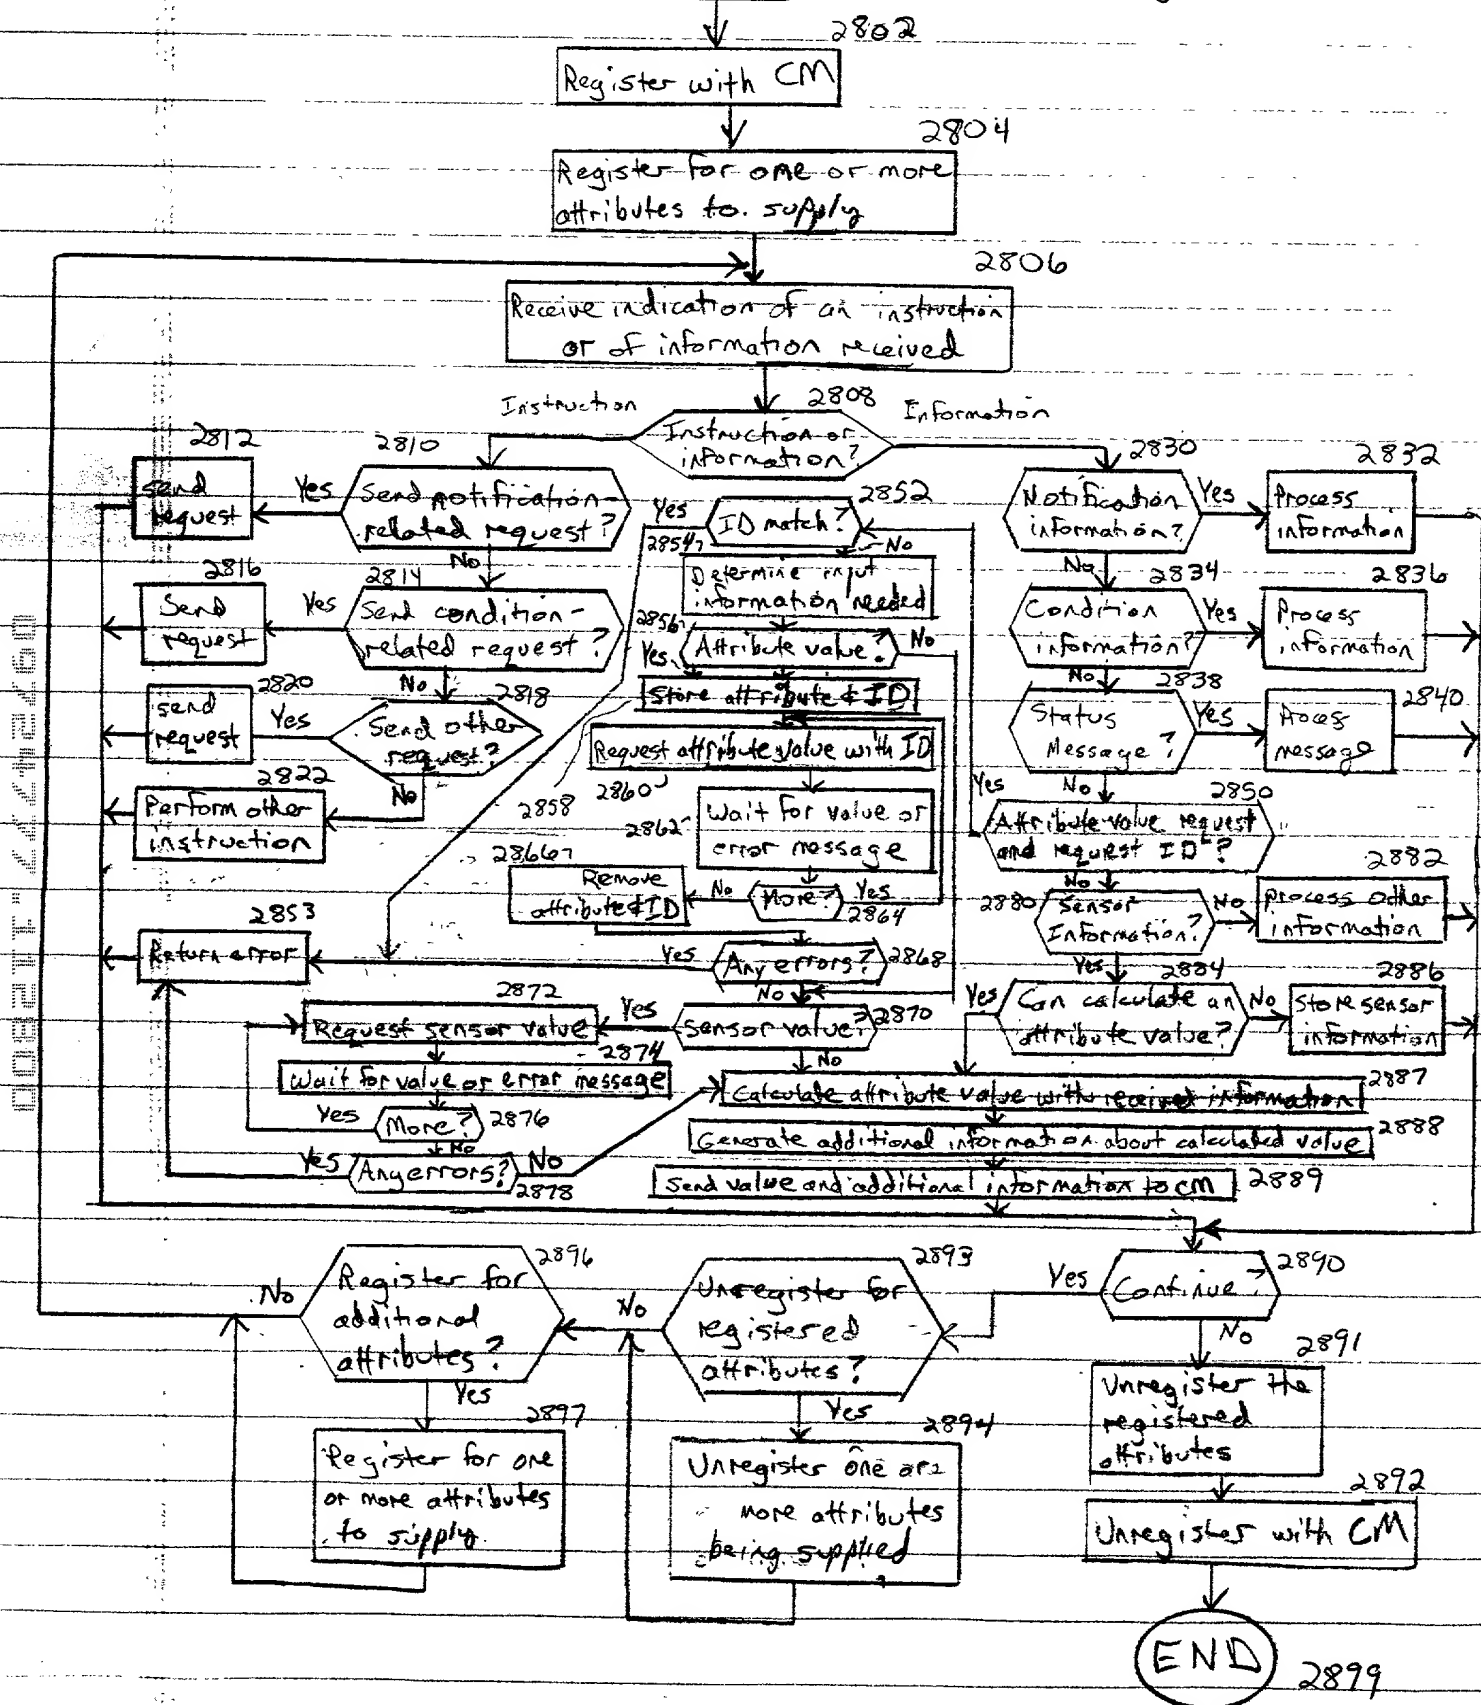 2802
Register with CM
2804
Register for one or more
attributes to supply
2806
Receive indication of an instruction
or of information received
2808
Instruction
Information
Instruction or
information?
2812
send
request
Yes
2810
Send notification-
related request?
No
2816
Send
request
Yes
2814
Send condition-
related request?
No
2820
send
request
Yes
2818
Send other
request?
No
2822
Perform other
instruction
2852
Yes
ID match?
No
2854
Determine input
information needed
2856
Yes
Attribute value?
No
Store attribute & ID
2858
Request attribute value with ID
2860
2862
Wait for value or
error message
2866
Remove
attribute & ID
No
More?
Yes
2864
2853
Return error
Yes
Any errors?
2868
No
2872
Request sensor value
Yes
Sensor value?
2870
No
2874
Wait for value or error message
Yes
More?
2876
No
Yes
Any errors?
No
2878
2830
Notification
information?
Yes
2832
Process
information
No
2834
Condition
information?
Yes
2836
Process
information
No
2838
Status
Message?
Yes
2840
message
No
2850
Yes
Attribute value request
and request ID?
No
2880
Sensor
Information?
No
2882
process other
information
Yes
2884
Yes
Can calculate an
attribute value?
No
2886
Store sensor
information
2887
Calculate attribute value with received information
2888
Generate additional information about calculated value
2889
Send value and additional information to CM
2890
Continue?
Yes
No
2891
Unregister the
registered
attributes
2892
Unregister with CM
END
2899
2893
Unregister for
registered
attributes?
No
Yes
2894
Unregister one or
more attributes
being supplied
2896
Register for
additional
attributes?
No
Yes
2897
Register for one
or more attributes
to supply